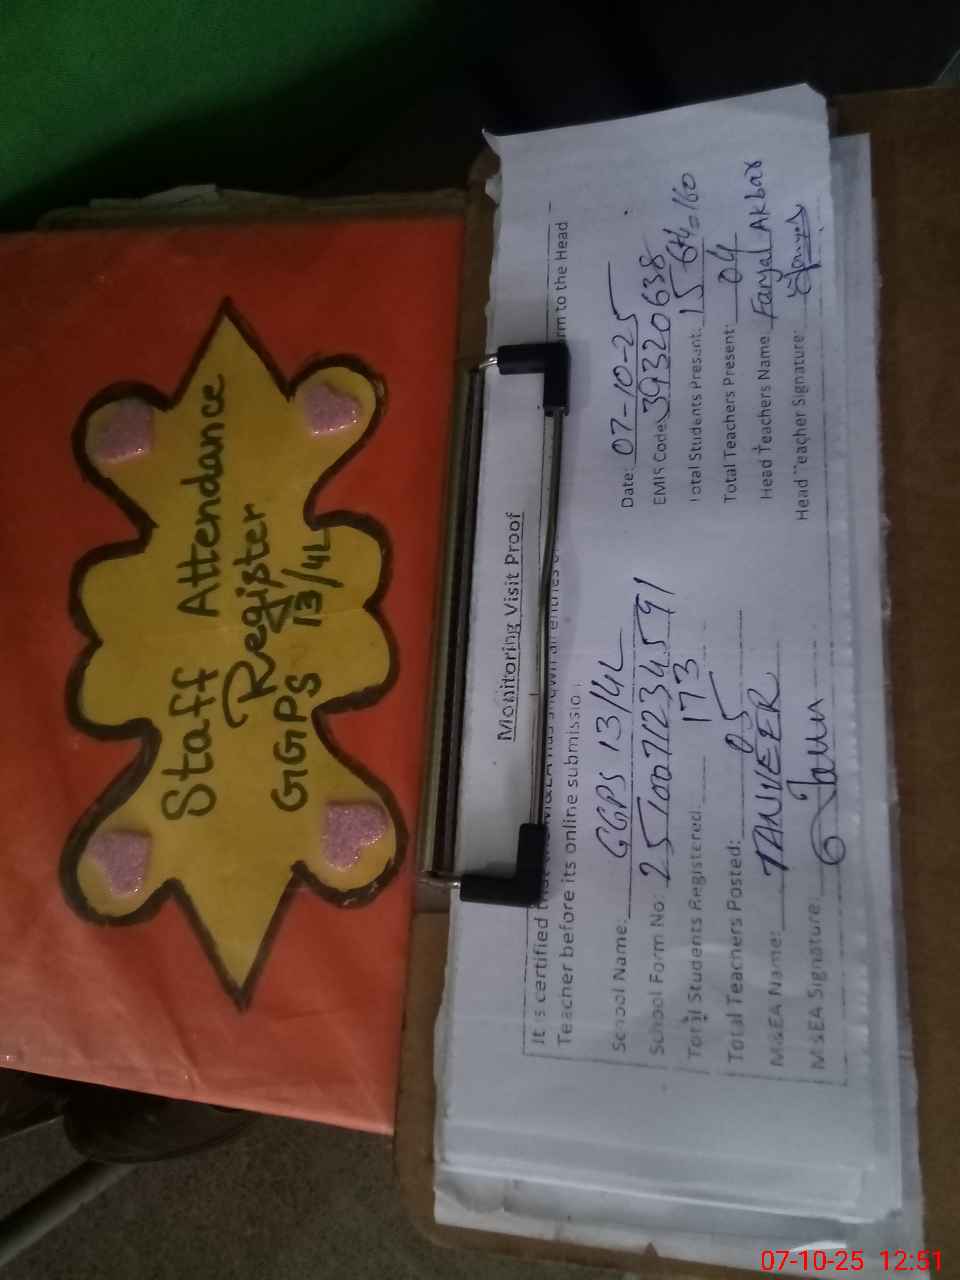 Staff Attendance
Register
GGPS 13/4L
Monitoring Visit Proof
It is certified
rm to the Head
Teacher before its online submission
School Name: GGPS 13/4L
Date: 07-10-25
School Form No: 251007123459
EMIS Code: 39320638
Total Students Registered: 173
Total Students Present: 156+4=160
Total Teachers Posted: 05
Total Teachers Present: 04
M&EA Name: TANVEER
Head Teachers Name: Akbar
M&EA Signature:
Head Teacher Signature:
07-10-25 12:51